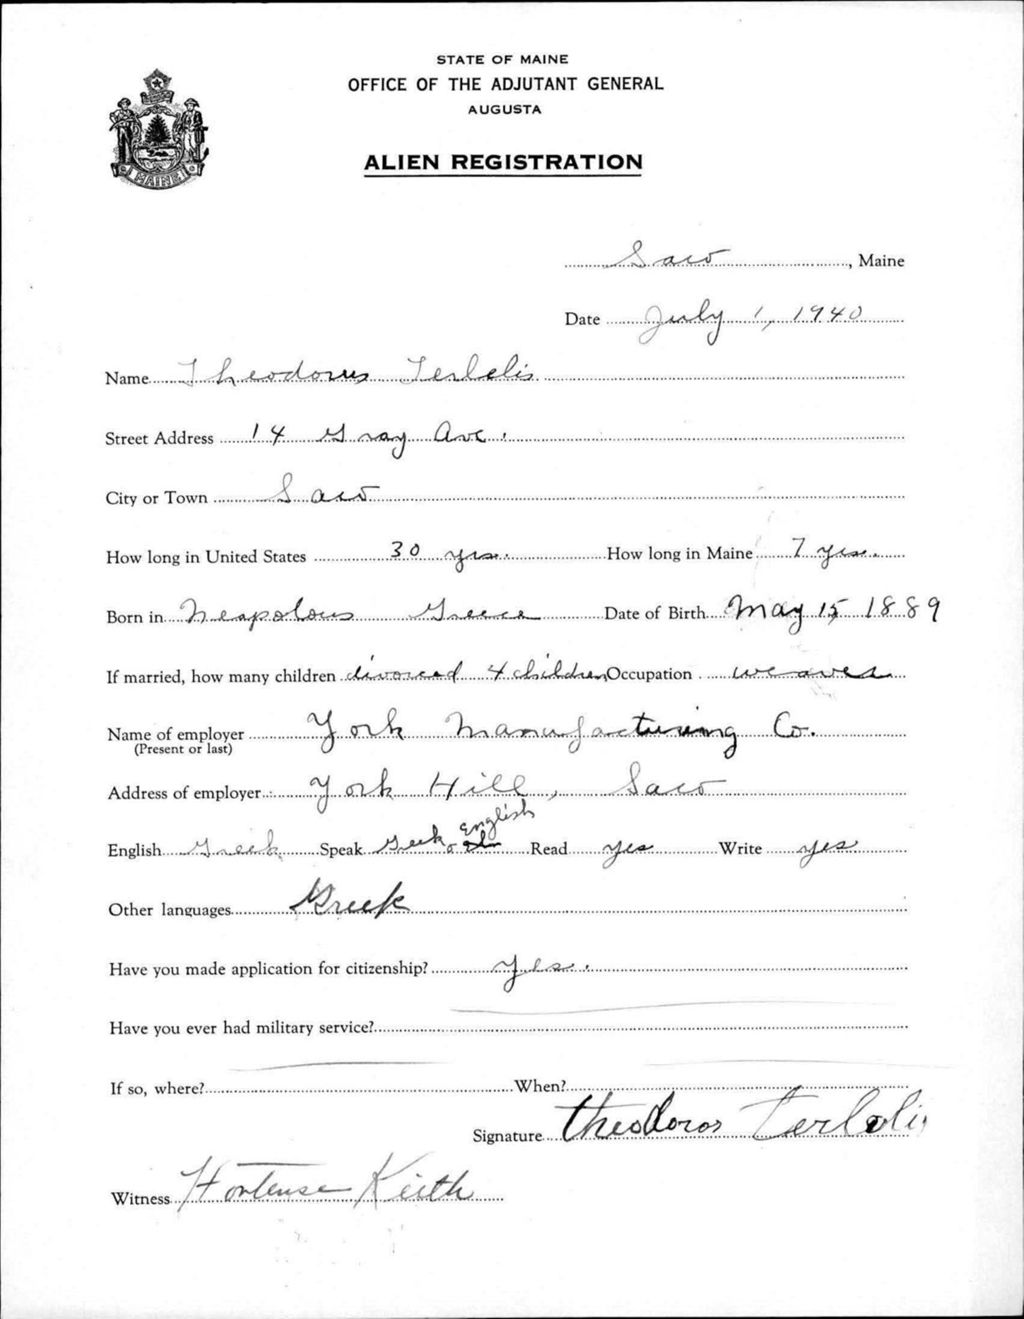 STATE OF MAINE
OFFICE OF THE ADJUTANT GENERAL
AUGUSTA
ALIEN REGISTRATION
MAINE
Saco, Maine
Date July 1, 1940
Name Theodorus Terlelis
Street Address 14 Gray Ave.
City or Town Saco
How long in United States 30 yrs. How long in Maine 7 yrs.
Born in Neapolous Greece Date of Birth May 15, 1889
If married, how many children divorced 4 children Occupation weaver
Name of employer York Manufacturing Co.
(Present or last)
Address of employer York Hill, Saco
English Greek Speak Greek English Read yes Write yes
Other languages Greek
Have you made application for citizenship? Yes.
Have you ever had military service?
If so, where? When?
Signature Theodoros Terlelis
Witness Hortense Keith